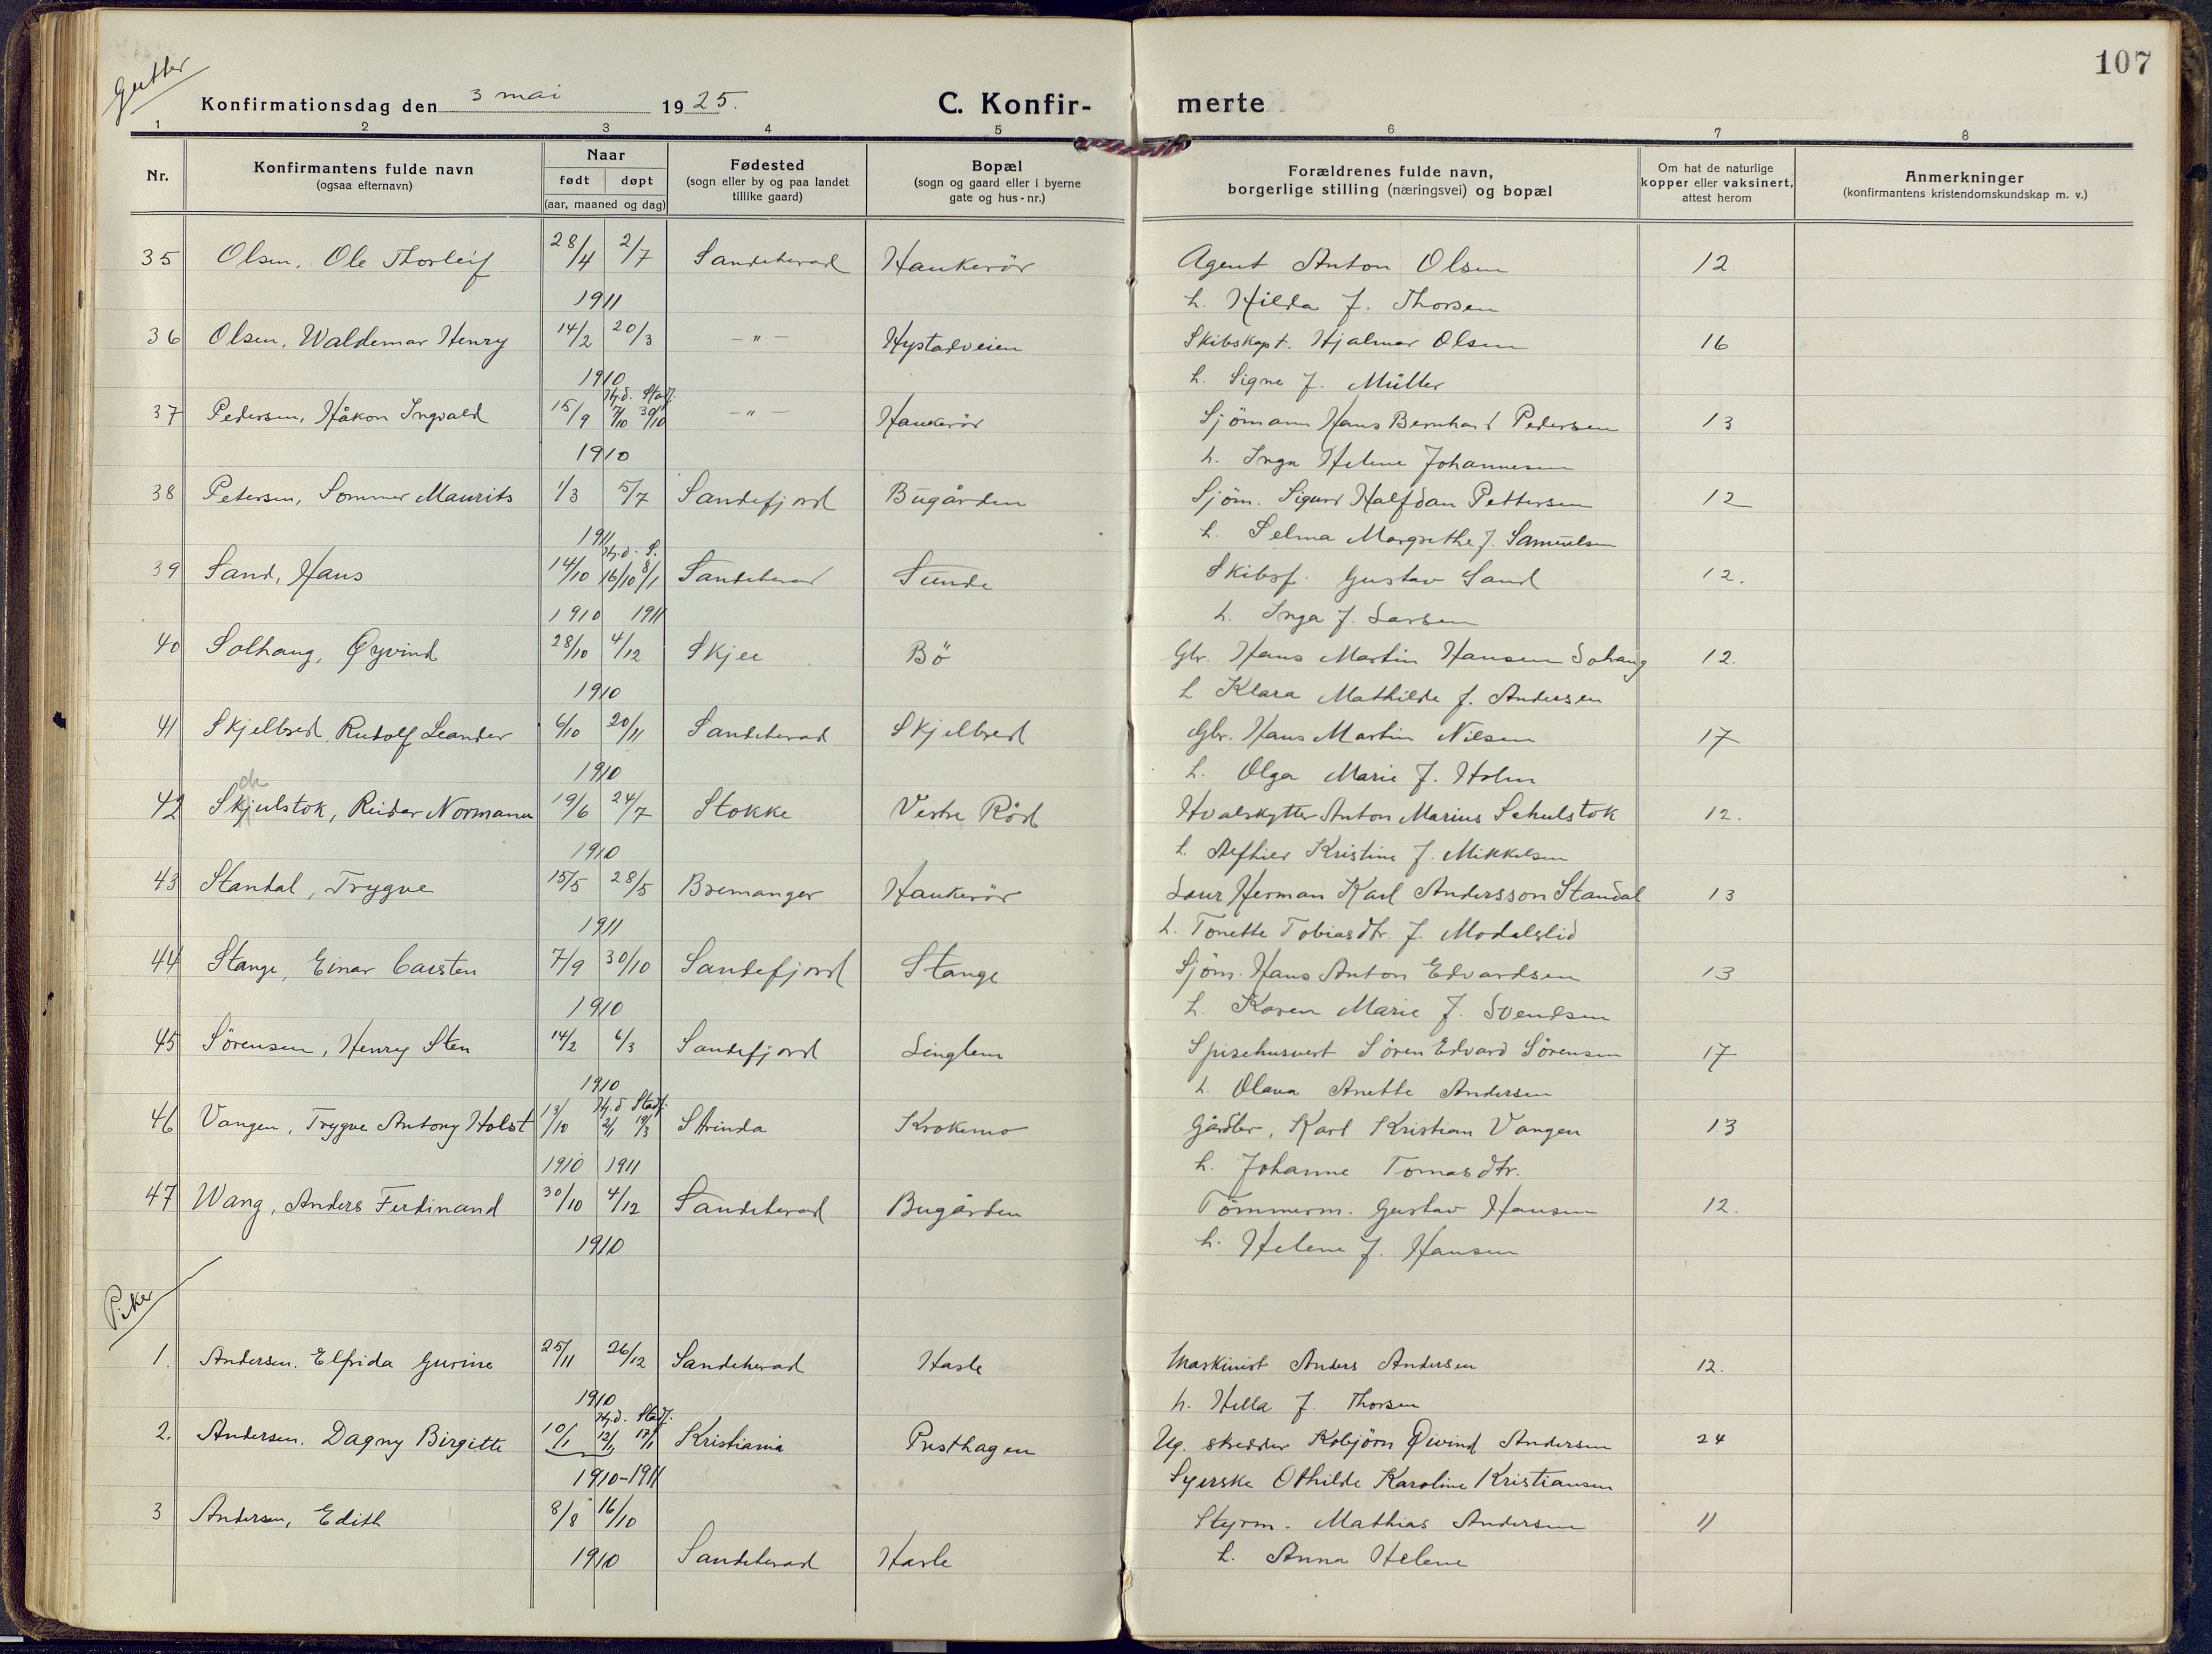 107
Gutter
Konfirmationsdag den 3 mai 1925. C. Konfir- merte
1 2 3 4 5 6 7 8
Nr. Konfirmantens fulde navn (ogsaa efternavn) Naar født døpt (aar, maaned og dag) Fødested (sogn eller by og paa landet tillike gaard) Bopæl (sogn og gaard eller i byerne gate og hus-nr.) Forældrenes fulde navn, borgerlige stilling (næringsvei) og bopæl Om hat de naturlige kopper eller vaksinert, attest herom Anmerkninger (konfirmantens kristendomskundskap m. v.)
35 Olsen, Ole Thorleif 28/4 2/7 Sandeherad Haukerör Agent Anton Olsen 12
1911 h. Hilda f. Thorsen
36 Olsen, Waldemar Henry 14/2 20/3 — " — Hystadveien Skibskapt. Hjalmar Olsen 16
1910 h. Signe f. Müller
Hj.d. Stadf.
37 Pedersen, Håkon Ingvald 15/9 7/10 30/10 — " — Haukerör Sjömann Hans Bernhard Pedersen 13
1910 h. Inga Helene Johannesen
38 Petersen, Sommer Maurits 1/3 5/7 Sandefjord Bugården Sjöm. Sigurd Halfdan Pettersen 12
1911 h. Selma Margrethe f. Samuelsen
Hj.d. S.
39 Sand, Hans 14/10 16/10 8/1 Sandeherad Sunde Skibsf. Gustav Sand 12.
1910 1911 h. Inga f. Larsen
40 Solhaug, Øyvind 28/10 4/12 Skjee Bö Gbr. Hans Martin Hansen Sohaug 12.
1910 h Klara Mathilde f. Andersen
41 Skjelbred, Rudolf Leander 6/10 20/11 Sandeherad Skjelbred Gbr. Hans Martin Nilsen 17
1910 h. Olga Marie f. Holm
ch
42 Skjulstok, Reidar Normann 19/6 24/7 Stokke Vestre Röd Hvalskytter Anton Marius Schulstok 12.
1910 h. Kristine f. Mikkelsen
43 Standal, Trygve 15/5 28/5 Bremanger Haukerör Herman Karl Andersson Standal 13
1911 h. Tonette Tobiasdtr. f. Modalslid
44 Stange, Einar Carsten 7/9 30/10 Sandefjord Stange Sjöm. Hans Anton Edvardsen 13
1910 h. Karen Marie f. Svendsen
45 Sörensen, Henry Sten 14/2 6/3 Sandefjord Linglem Spisehusvert Sören Edvard Sörensen 17
1910 h. Olava Anette Andersen
Hj.d Stadf.
46 Vangen, Trygve Antony Holst 13/10 2/1 19/3 Strinda Krokemo Gårdbr, Karl Kristian Vangen 13
1910 1911 h. Johanne Tomasdtr.
47 Wang, Anders Ferdinand 30/10 4/12 Sandeherad Bugården Tömmerm. Gustav Hansen 12.
1910 h. Helene f. Hansen
Piker
1. Andersen, Elfrida Gurine 25/11 26/12 Sandeherad Hasle Maskinist Anders Andersen 12.
1910 h. Hella f. Thorsen
Hj.d. Stadf.
2. Andersen, Dagny Birgitte 10/1 12/1 17/1 Kristiania Presthagen Ug. skredder Kobjörn Öivind Andersen 24
1910-1911 Syerske Othilde Karoline Kristiansen
3 Andersen, Edith 8/8 16/10 Styrm. Mathias Andersen 11
1910 Sandeherad Hasle h. Anna Helene